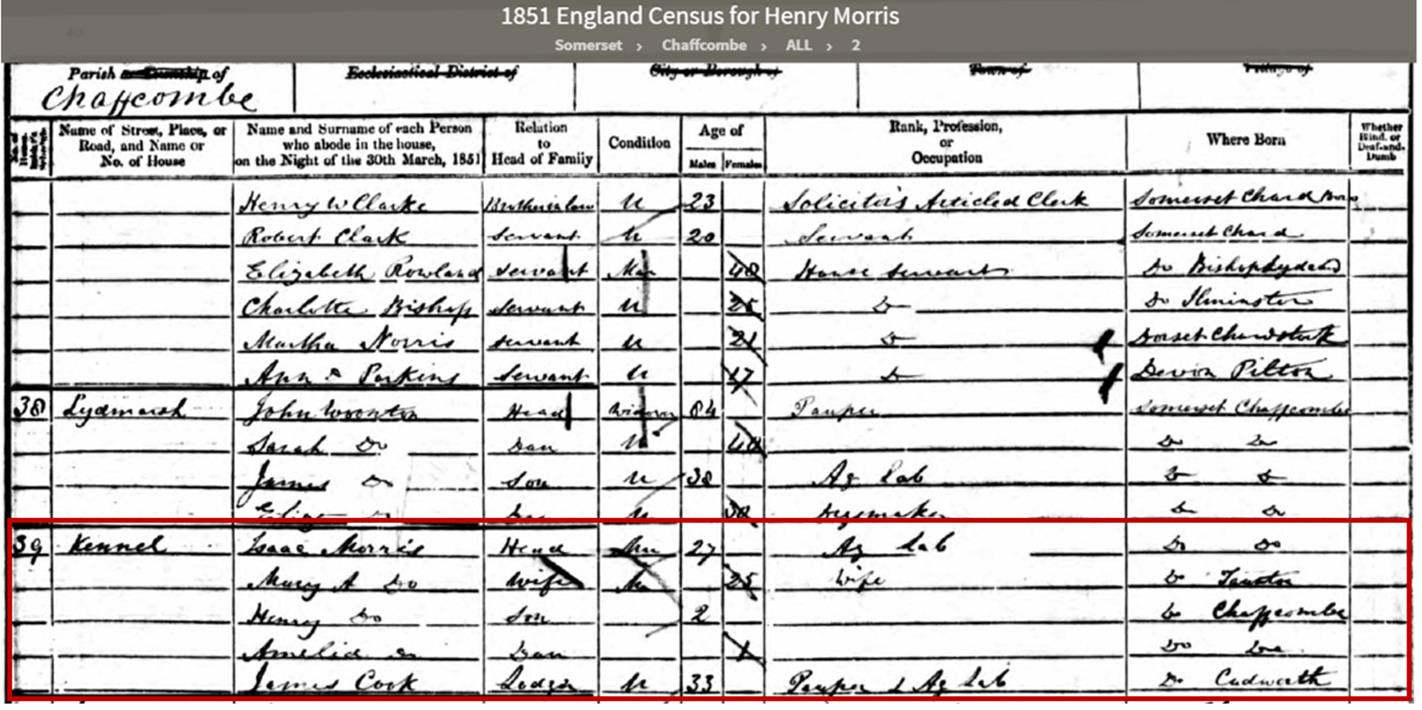 1851 England Census for Henry Morris
Somerset › Chaffcombe › ALL › 2
Parish or Township of
Ecclesiastical District of
City or Borough of
Town of
Village of
Chaffcombe
Name of Street, Place, or Road, and Name or No. of House
Name and Surname of each Person who abode in the house, on the Night of the 30th March, 1851
Relation to Head of Family
Condition
Age of
Males
Females
Rank, Profession, or Occupation
Where Born
Whether Blind, or Deaf-and-Dumb
Henry W Clarke Brotherinlaw U 23 Solicitor's Articled Clerk Somerset Chard
Robert Clark Servant U 20 Servant Somerset Chard
Elizabeth Rowland Servant Mar 40 House Servant Do Bishop Lydeard
Charlotte Bishop Servant U 25 Do Do Ilminster
Martha Norris Servant U 21 Do Dorset Chardstock
Ann Parkins Servant U 17 Do Devon Pilton
38 Lydmarsh John Woonton Head Widower 84 Pauper Somerset Chaffcombe
Sarah Do Dau U 40 Do Do
James Do Son U 38 Ag Lab Do Do
Do Dau U 30 Do Do
39 Kennel Isaac Morris Head Mar 27 Ag Lab Do Do
Mary A Do Wife M 25 Wife Do Taunton
Henry Do Son 2 Do Chaffcombe
Amelia Do Dau 1 Do Do
James Cook Lodger U 33 Pauper & Ag Lab Do Cudworth